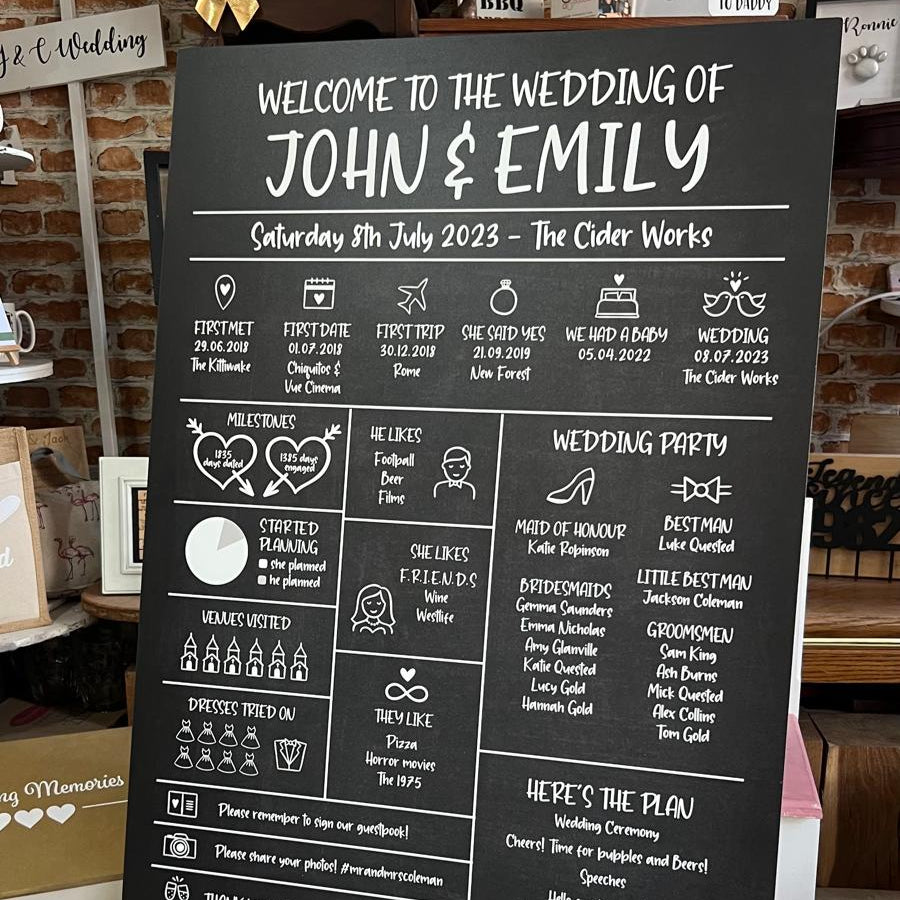 BBQ
TO DADDY
J & C Wedding
Ronnie
WELCOME TO THE WEDDING OF
JOHN & EMILY
Saturday 8th July 2023 - The Cider Works
FIRST MET
29.06.2018
The Kittiwake
FIRST DATE
01.07.2018
Chiquitos &
Vue Cinema
FIRST TRIP
30.12.2018
Rome
SHE SAID YES
21.09.2019
New Forest
WE HAD A BABY
05.04.2022
WEDDING
08.07.2023
The Cider Works
MILESTONES
1835
days dated
1385 days
engaged
STARTED
PLANNING
she planned
he planned
VENUES VISITED
DRESSES TRIED ON
HE LIKES
Football
Beer
Films
SHE LIKES
F.R.I.E.N.D.S
Wine
Westlife
THEY LIKE
Pizza
Horror movies
The 1975
WEDDING PARTY
MAID OF HONOUR
Katie Robinson
BRIDESMAIDS
Gemma Saunders
Emma Nicholas
Amy Glanville
Katie Quested
Lucy Gold
Hannah Gold
BEST MAN
Luke Quested
LITTLE BEST MAN
Jackson Coleman
GROOMSMEN
Sam King
Ash Burns
Mick Quested
Alex Collins
Tom Gold
Please remember to sign our guestbook!
Please share your photos! #mrandmrscoleman
HERE'S THE PLAN
Wedding Ceremony
Cheers! Time for bubbles and Beers!
Speeches
Legend
Memories